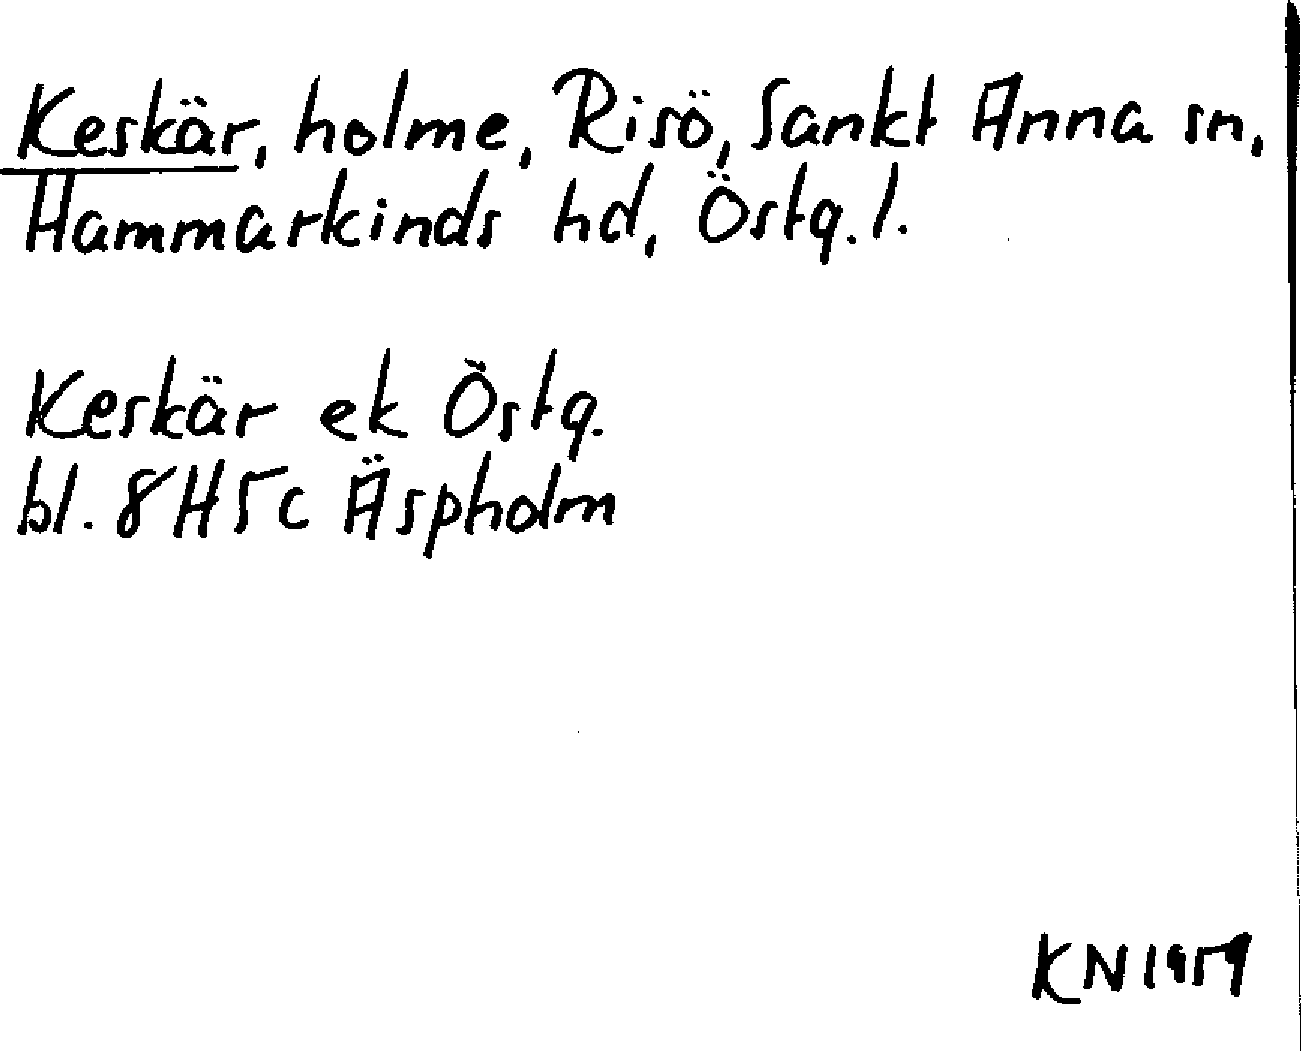 Keskär, holme, Risö, Sankt Anna sn,
Hammarkinds hd, Östg. l.
Keskär ek Östg.
bl. 8H5c Äspholm
KN 1959